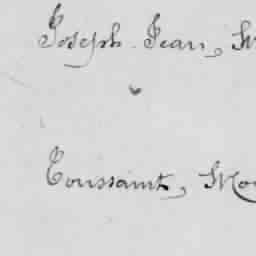 Joseph Jean,
Toussaint,